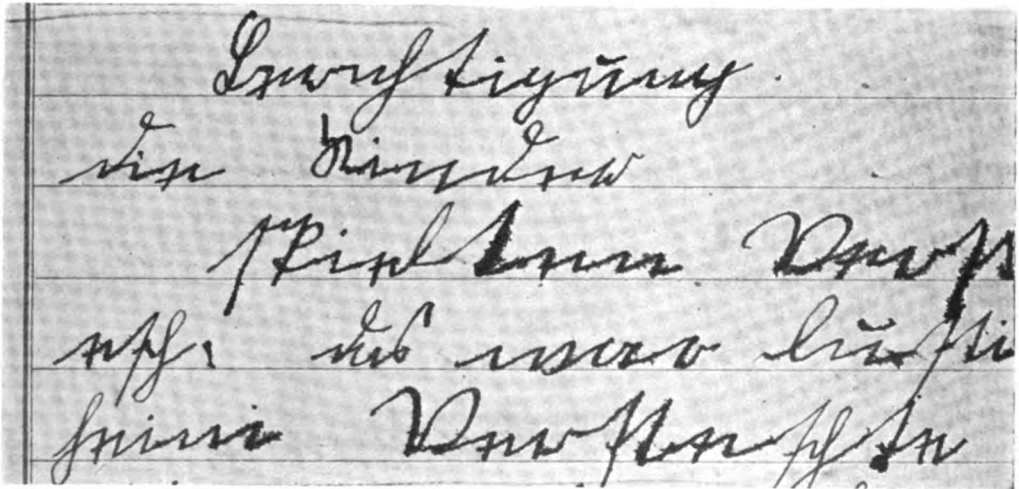 Berichtigung.
die Kinder
spielten Verst
esch. das war lusti
heini Versteschte